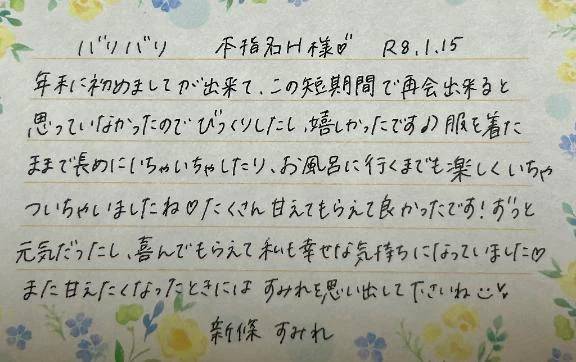 バリバリ 本指名H様♡ R8.1.15
年末に初めましてが出来て、この短期間で再会出来ると
思っていなかったのでびっくりしたし、嬉しかったです♪ 服を着た
ままで長めにいちゃいちゃしたり、お風呂に行くまでも楽しくいちゃ
ついちゃいましたね♡たくさん甘えてもらえて良かったです!ずっと
元気だったし、喜んでもらえて私も幸せな気持ちになっていました♡
また甘えたくなったときにはすみれを思い出して下さいね
新條 すみれ